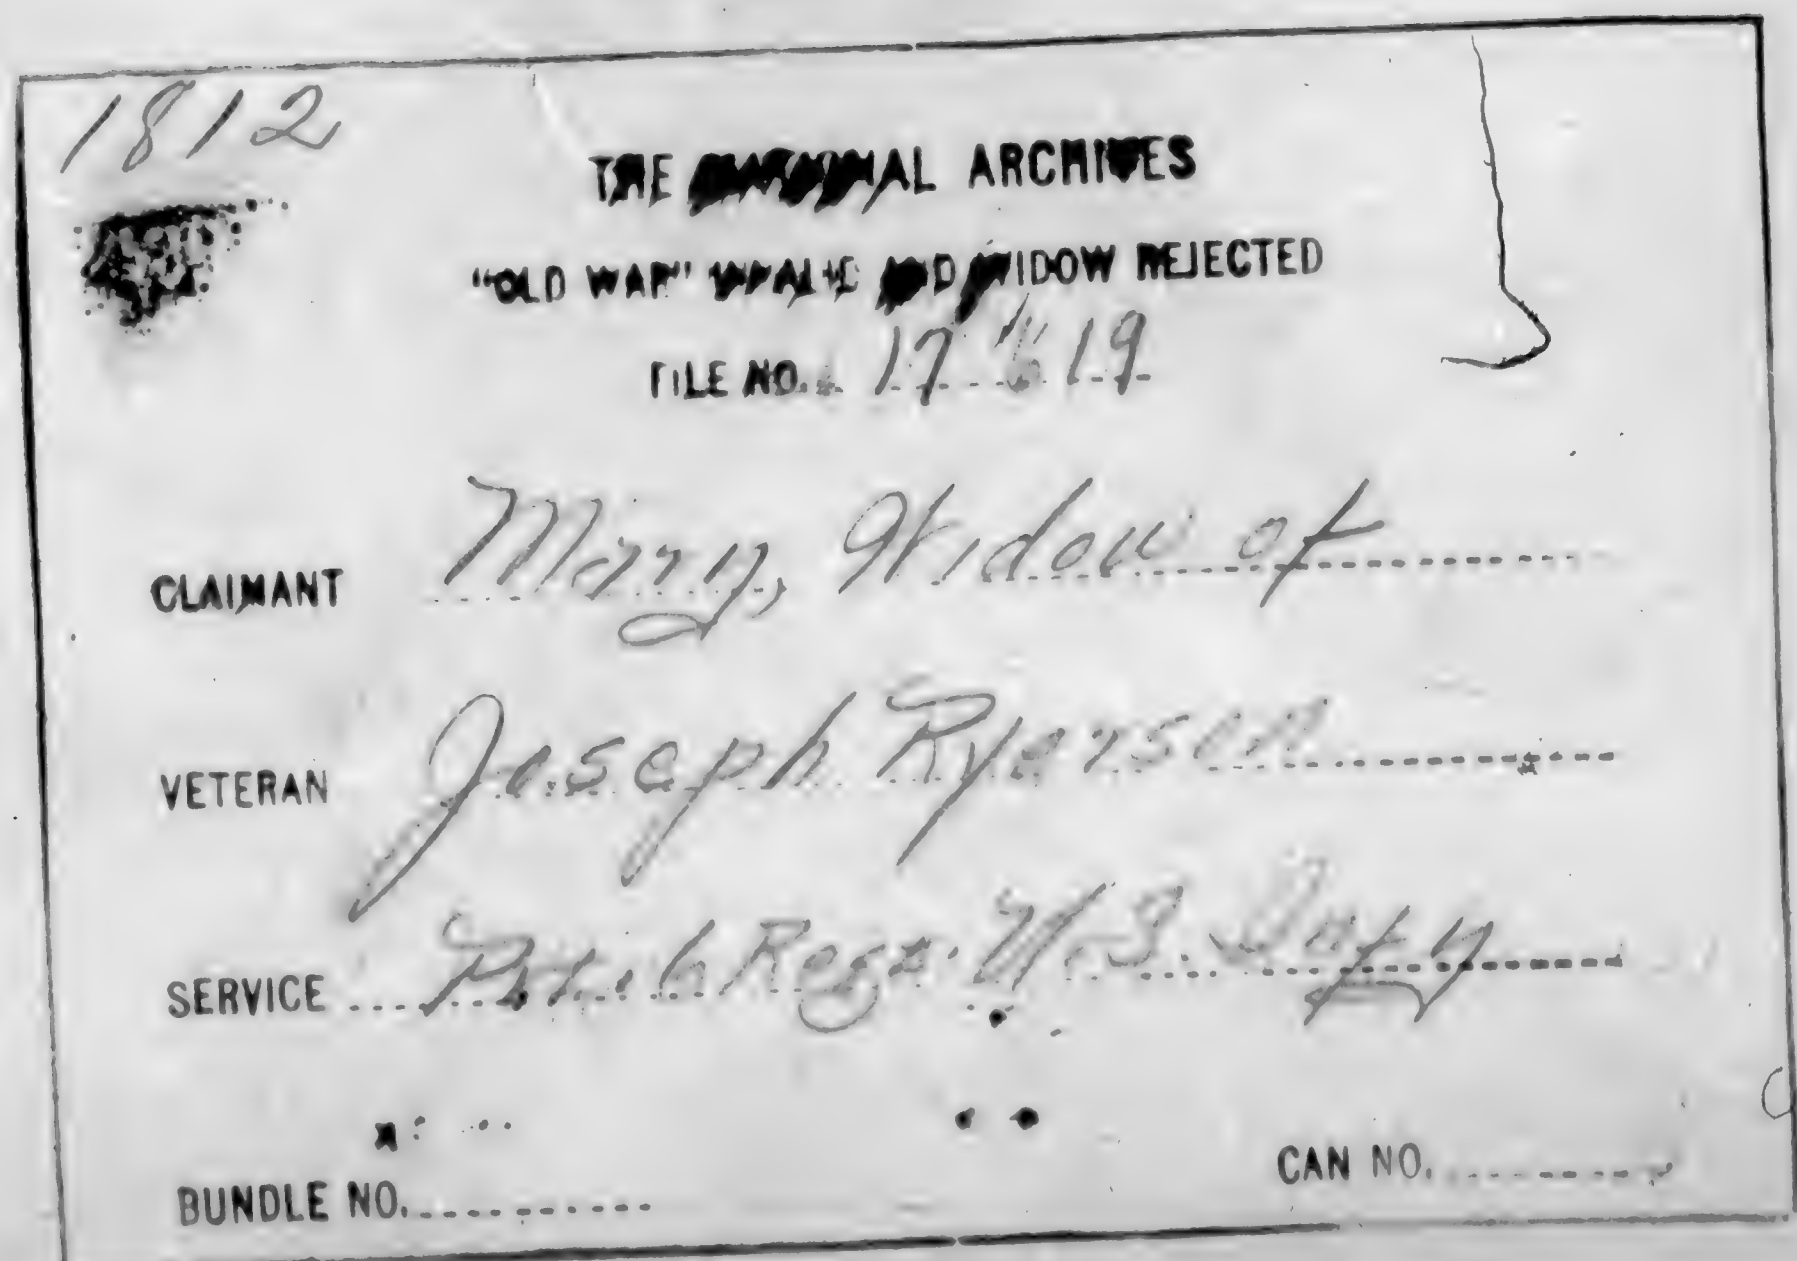 1812
THE NATIONAL ARCHIVES
"OLD WAR" INVALID AND WIDOW REJECTED
FILE NO. 17
CLAIMANT Mary, Widow of
VETERAN Joseph Ryerson
SERVICE Regt. U.S. Infy
BUNDLE NO.
CAN NO.